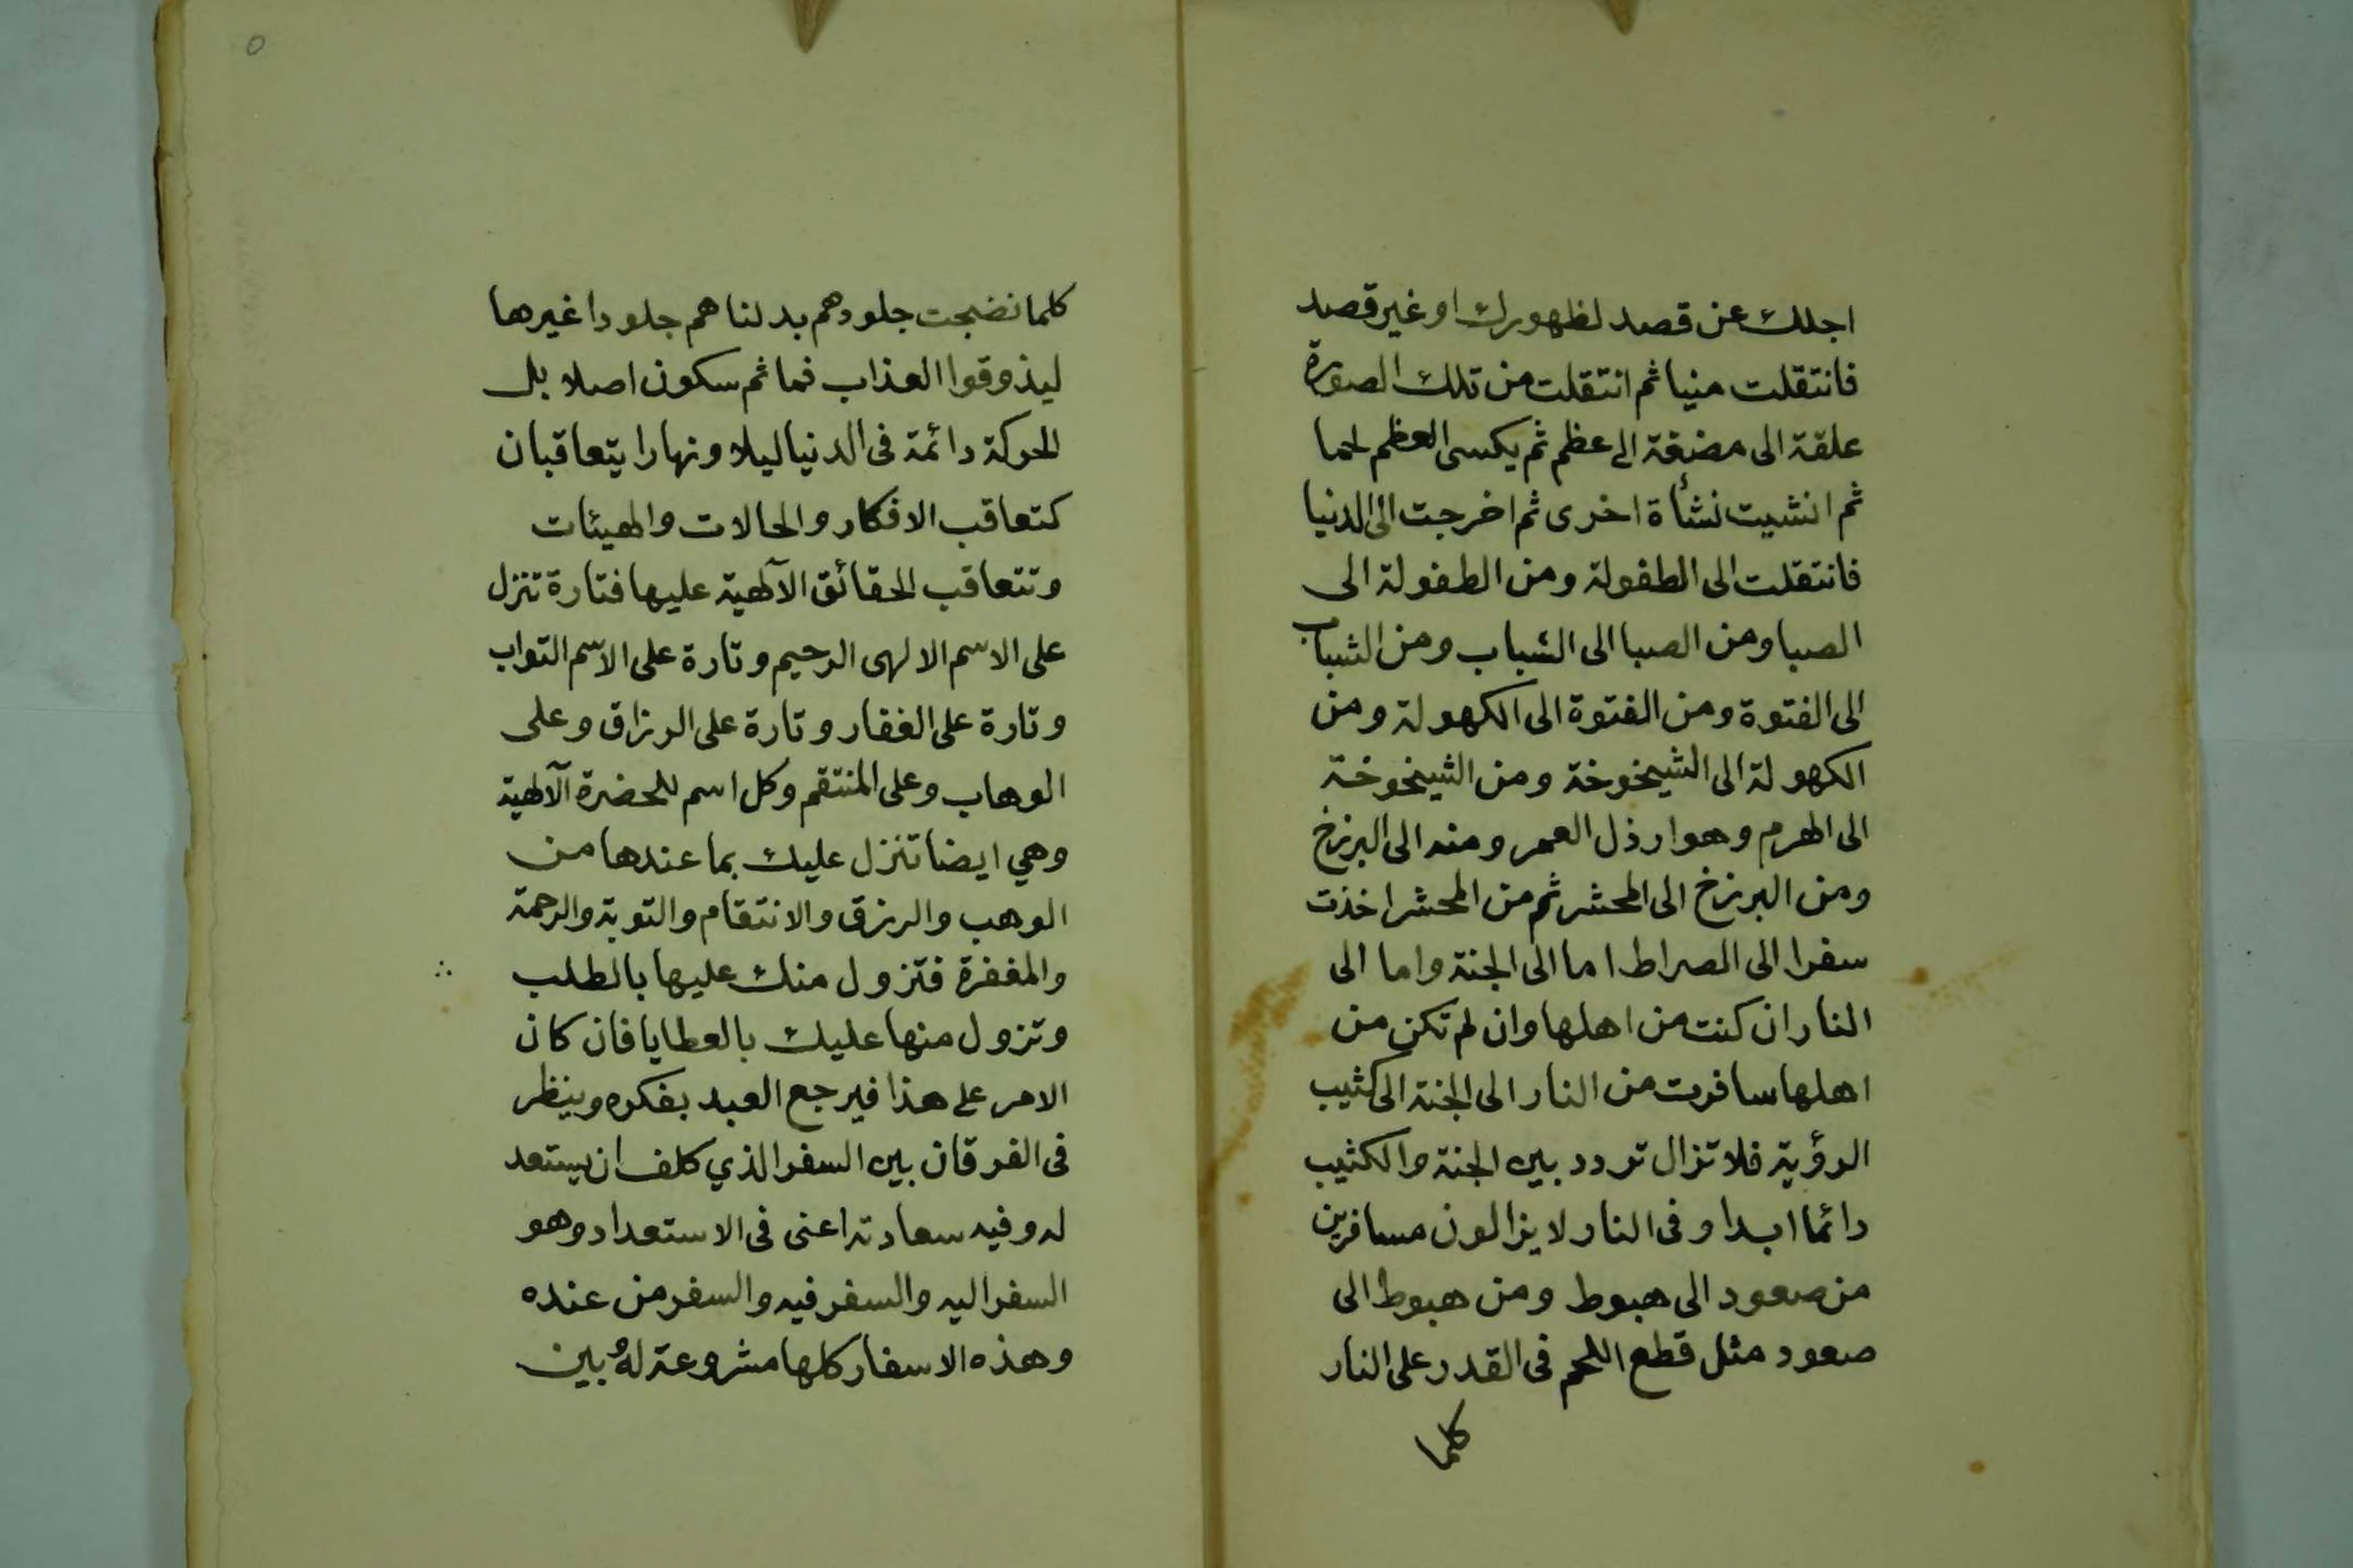 اجلك عن قصد لظهورك او غير قصد
فانتقلت منيا ثم انتقلت من تلك الصورة
علقة الى مضغة الى عظم ثم يكسى العظم لحما
ثم انشيت نشأة اخرى ثم اخرجت الى الدنيا
فانتقلت الى الطفولة ومن الطفولة الى
الصبا ومن الصبا الى الشباب ومن الشباب
الى الفتوة ومن الفتوة الى الكهولة ومن
الكهولة الى الشيخوخة ومن الشيخوخة
الى الهرم وهو ارذل العمر ومنه الى البرزخ
ومن البرزخ الى المحشر ثم من المحشر اخذت
سفرا الى الصراط اما الى الجنة واما الى
النار ان كنت من اهلها وان لم تكن من
اهلها سافرت من النار الى الجنة الى كثيب
الرؤية فلا تزال تردد بين الجنة والكثيب
دائما ابدا وفى النار لا يزالون مسافرين
من صعود الى هبوط ومن هبوط الى
صعود مثل قطع اللحم فى القدر على النار
كلما
٥
كلما نضجت جلودهم بدلناهم جلودا غيرها
ليذوقوا العذاب فما ثم سكون اصلا بل
الحركة دائمة فى الدنيا ليلا ونهارا يتعاقبان
كتعاقب الافكار والحالات والهيئات
وتتعاقب الحقائق الآلهية عليها فتارة تنزل
على الاسم الالهى الرحيم وتارة على الاسم التواب
وتارة على الغفار وتارة على الرزاق وعلى
الوهاب وعلى المنتقم وكل اسم للحضرة الآلهية
وهي ايضا تنزل عليك بما عندها من
الوهب والرزق والانتقام والتوبة والرحمة
والمغفرة فتزول منك عليها بالطلب
وتزول منها عليك بالعطايا فان كان
الامر على هذا فيرجع العبد بفكره وينظر
فى الفرقان بين السفر الذي كلف ان يستعد
له وفيه سعادته اعنى فى الاستعداد وهو
السفر اليه والسفر فيه والسفر من عنده
وهذه الاسفار كلها مشروعة له وبين